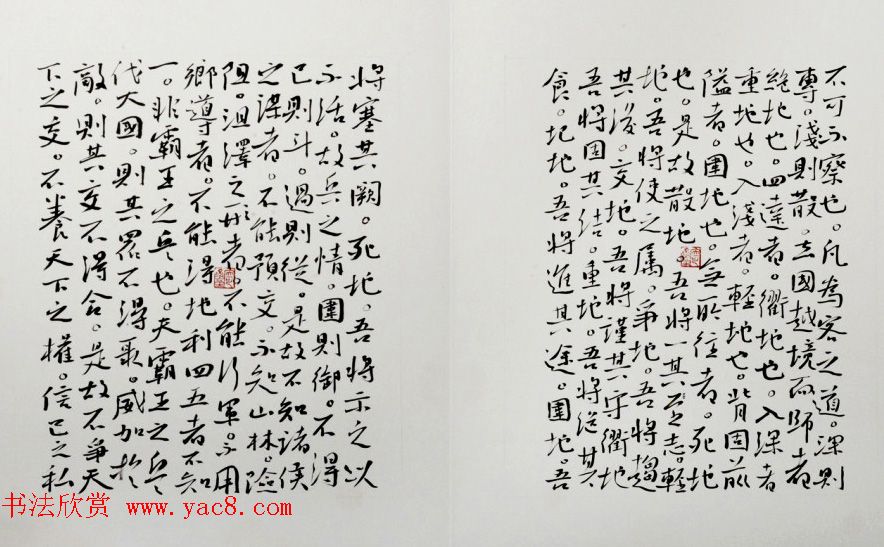 不可不察也。凡為客之道。深則
專。淺則散。去國越境而師者
絕地也。四達者。衢地也。入深者
重地也。入淺者。輕地也。背固前
隘者。圍地也。無所往者。死地
也。是故散地。吾將一其志。輕
地。吾將使之屬。爭地。吾將趨
其後。交地。吾將謹其守。衢地
吾將固其結。重地。吾將從其
食。圮地。吾將進其途。圍地。吾
將塞其闕。死地。吾將示之以
不活。故兵之情。圍則御。不得
已則斗。過則從。是故不知諸侯
之謀者。不能預交。不知山林。險
阻。沮澤之形者。不能行軍。不用
鄉導者。不能得地利四五者不知
一。非霸王之兵也。夫霸王之兵
伐大國。則其眾不得聚。威加於
敵。則其交不得合。是故不爭天
下之交。不養天下之權。信己之私
书法欣赏 www.yac8.com